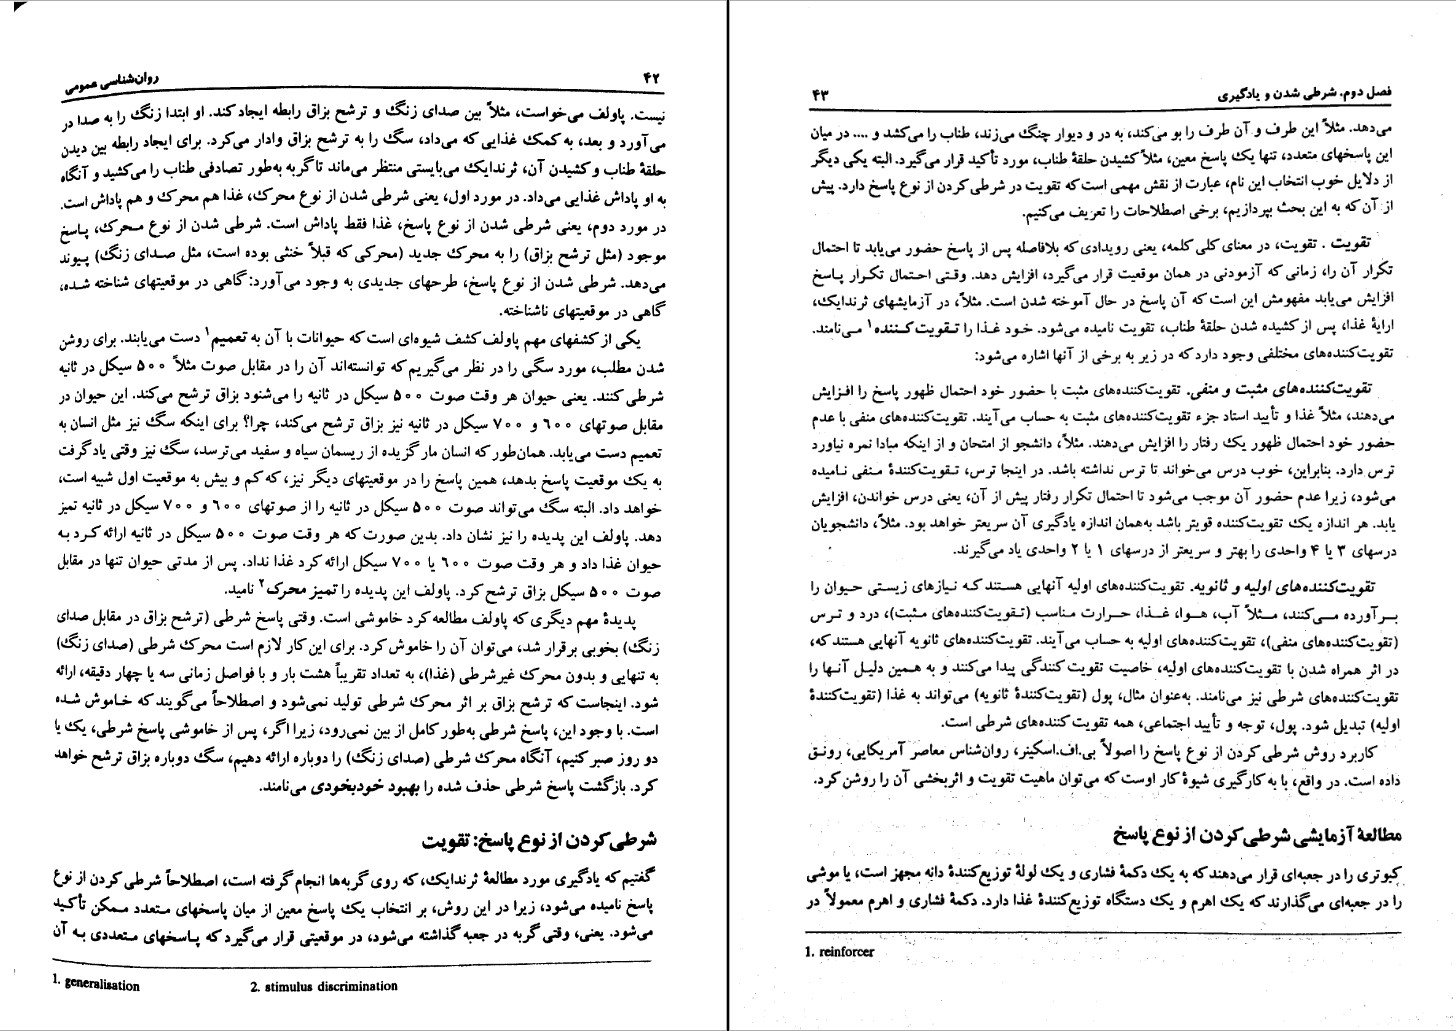 ۴۲
روان‌شناسی عمومی
نیست. پاولف می‌خواست، مثلاً بین صدای زنگ و ترشح بزاق رابطه ایجاد کند. او ابتدا زنگ را به صدا در
می‌آورد و بعد، به کمک غذایی که می‌داد، سگ را به ترشح بزاق وادار می‌کرد. برای ایجاد رابطه بین دیدن
حلقهٔ طناب و کشیدن آن، ثرندایک می‌بایستی منتظر می‌ماند تا گربه به‌طور تصادفی طناب را می‌کشید و آنگاه
به او پاداش غذایی می‌داد. در مورد اول، یعنی شرطی شدن از نوع محرک، غذا هم محرک و هم پاداش است.
در مورد دوم، یعنی شرطی شدن از نوع پاسخ، غذا فقط پاداش است. شرطی شدن از نوع محرک، پاسخ
موجود (مثل ترشح بزاق) را به محرک جدید (محرکی که قبلاً خنثی بوده است، مثل صدای زنگ) پیوند
می‌دهد. شرطی شدن از نوع پاسخ، طرحهای جدیدی به وجود می‌آورد: گاهی در موقعیتهای شناخته شده،
گاهی در موقعیتهای ناشناخته.
یکی از کشفهای مهم پاولف کشف شیوه‌ای است که حیوانات با آن به تعمیم۱ دست می‌یابند. برای روشن
شدن مطلب، مورد سگی را در نظر می‌گیریم که توانسته‌اند آن را در مقابل صوت مثلاً ۵۰۰ سیکل در ثانیه
شرطی کنند. یعنی حیوان هر وقت صوت ۵۰۰ سیکل در ثانیه را می‌شنود بزاق ترشح می‌کند. این حیوان در
مقابل صوتهای ۶۰۰ و ۷۰۰ سیکل در ثانیه نیز بزاق ترشح می‌کند، چرا؟ برای اینکه سگ نیز مثل انسان به
تعمیم دست می‌یابد. همان‌طور که انسان مار گزیده از ریسمان سیاه و سفید می‌ترسد، سگ نیز وقتی یاد گرفت
به یک موقعیت پاسخ بدهد، همین پاسخ را در موقعیتهای دیگر نیز، که کم و بیش به موقعیت اول شبیه است،
خواهد داد. البته سگ می‌تواند صوت ۵۰۰ سیکل در ثانیه را از صوتهای ۶۰۰ و ۷۰۰ سیکل در ثانیه تمیز
دهد. پاولف این پدیده را نیز نشان داد. بدین صورت که هر وقت صوت ۵۰۰ سیکل در ثانیه ارائه کرد به
حیوان غذا داد و هر وقت صوت ۶۰۰ یا ۷۰۰ سیکل ارائه کرد غذا نداد. پس از مدتی حیوان تنها در مقابل
صوت ۵۰۰ سیکل بزاق ترشح کرد. پاولف این پدیده را تمیز محرک۲ نامید.
پدیدهٔ مهم دیگری که پاولف مطالعه کرد خاموشی است. وقتی پاسخ شرطی (ترشح بزاق در مقابل صدای
زنگ) بخوبی برقرار شد، می‌توان آن را خاموش کرد. برای این کار لازم است محرک شرطی (صدای زنگ)
به تنهایی و بدون محرک غیرشرطی (غذا)، به تعداد تقریباً هشت بار و با فواصل زمانی سه یا چهار دقیقه، ارائه
شود. اینجاست که ترشح بزاق بر اثر محرک شرطی تولید نمی‌شود و اصطلاحاً می‌گویند که خاموش شده
است. با وجود این، پاسخ شرطی به‌طور کامل از بین نمی‌رود، زیرا اگر، پس از خاموشی پاسخ شرطی، یک یا
دو روز صبر کنیم، آنگاه محرک شرطی (صدای زنگ) را دوباره ارائه دهیم، سگ دوباره بزاق ترشح خواهد
کرد. بازگشت پاسخ شرطی حذف شده را بهبود خودبخودی می‌نامند.
شرطی کردن از نوع پاسخ: تقویت
گفتیم که یادگیری مورد مطالعهٔ ثرندایک، که روی گربه‌ها انجام گرفته است، اصطلاحاً شرطی کردن از نوع
پاسخ نامیده می‌شود، زیرا در این روش، بر انتخاب یک پاسخ معین از میان پاسخهای متعدد ممکن تأکید
می‌شود. یعنی، وقتی گربه در جعبه گذاشته می‌شود، در موقعیتی قرار می‌گیرد که پاسخهای متعددی به آن
1. generalisation
2. stimulus discrimination
فصل دوم. شرطی شدن و یادگیری
۴۳
می‌دهد. مثلاً این طرف و آن طرف را بو می‌کند، به در و دیوار چنگ می‌زند، طناب را می‌کشد و .... در میان
این پاسخهای متعدد، تنها یک پاسخ معین، مثلاً کشیدن حلقهٔ طناب، مورد تأکید قرار می‌گیرد. البته یکی دیگر
از دلایل خوب انتخاب این نام، عبارت از نقش مهمی است که تقویت در شرطی کردن از نوع پاسخ دارد. پیش
از آن که به این بحث بپردازیم، برخی اصطلاحات را تعریف می‌کنیم.
تقویت . تقویت، در معنای کلی کلمه، یعنی رویدادی که بلافاصله پس از پاسخ حضور می‌یابد تا احتمال
تکرار آن را، زمانی که آزمودنی در همان موقعیت قرار می‌گیرد، افزایش دهد. وقتی احتمال تکرار پاسخ
افزایش می‌یابد مفهومش این است که آن پاسخ در حال آموخته شدن است. مثلاً، در آزمایشهای ثرندایک،
ارایهٔ غذا، پس از کشیده شدن حلقهٔ طناب، تقویت نامیده می‌شود. خود غذا را تقویت‌کننده۱ می‌نامند.
تقویت‌کننده‌های مختلفی وجود دارد که در زیر به برخی از آنها اشاره می‌شود:
تقویت‌کننده‌های مثبت و منفی. تقویت‌کننده‌های مثبت با حضور خود احتمال ظهور پاسخ را افزایش
می‌دهند، مثلاً غذا و تأیید استاد جزء تقویت‌کننده‌های مثبت به حساب می‌آیند. تقویت‌کننده‌های منفی با عدم
حضور خود احتمال ظهور یک رفتار را افزایش می‌دهند. مثلاً، دانشجو از امتحان و از اینکه مبادا نمره نیاورد
ترس دارد. بنابراین، خوب درس می‌خواند تا ترس نداشته باشد. در اینجا ترس، تقویت‌کنندهٔ منفی نامیده
می‌شود، زیرا عدم حضور آن موجب می‌شود تا احتمال تکرار رفتار پیش از آن، یعنی درس خواندن، افزایش
یابد. هر اندازه یک تقویت‌کننده قویتر باشد به‌همان اندازه یادگیری آن سریعتر خواهد بود. مثلاً، دانشجویان
درسهای ۳ یا ۴ واحدی را بهتر و سریعتر از درسهای ۱ یا ۲ واحدی یاد می‌گیرند.
تقویت‌کننده‌های اولیه و ثانویه. تقویت‌کننده‌های اولیه آنهایی هستند که نیازهای زیستی حیوان را
برآورده می‌کنند، مثلاً آب، هوا، غذا، حرارت مناسب (تقویت‌کننده‌های مثبت)، درد و ترس
(تقویت‌کننده‌های منفی)، تقویت‌کننده‌های اولیه به حساب می‌آیند. تقویت‌کننده‌های ثانویه آنهایی هستند که،
در اثر همراه شدن با تقویت‌کننده‌های اولیه، خاصیت تقویت کنندگی پیدا می‌کنند و به همین دلیل آنها را
تقویت‌کننده‌های شرطی نیز می‌نامند. به‌عنوان مثال، پول (تقویت‌کنندهٔ ثانویه) می‌تواند به غذا (تقویت‌کنندهٔ
اولیه) تبدیل شود. پول، توجه و تأیید اجتماعی، همه تقویت کننده‌های شرطی است.
کاربرد روش شرطی کردن از نوع پاسخ را اصولاً بی.اف.اسکینر، روان‌شناس معاصر آمریکایی، رونق
داده است. در واقع، با به کارگیری شیوهٔ کار اوست که می‌توان ماهیت تقویت و اثربخشی آن را روشن کرد.
مطالعهٔ آزمایشی شرطی کردن از نوع پاسخ
کبوتری را در جعبه‌ای قرار می‌دهند که به یک دکمهٔ فشاری و یک لولهٔ توزیع‌کنندهٔ دانه مجهز است، یا موشی
را در جعبه‌ای می‌گذارند که یک اهرم و یک دستگاه توزیع‌کنندهٔ غذا دارد. دکمهٔ فشاری و اهرم معمولاً در
1. reinforcer